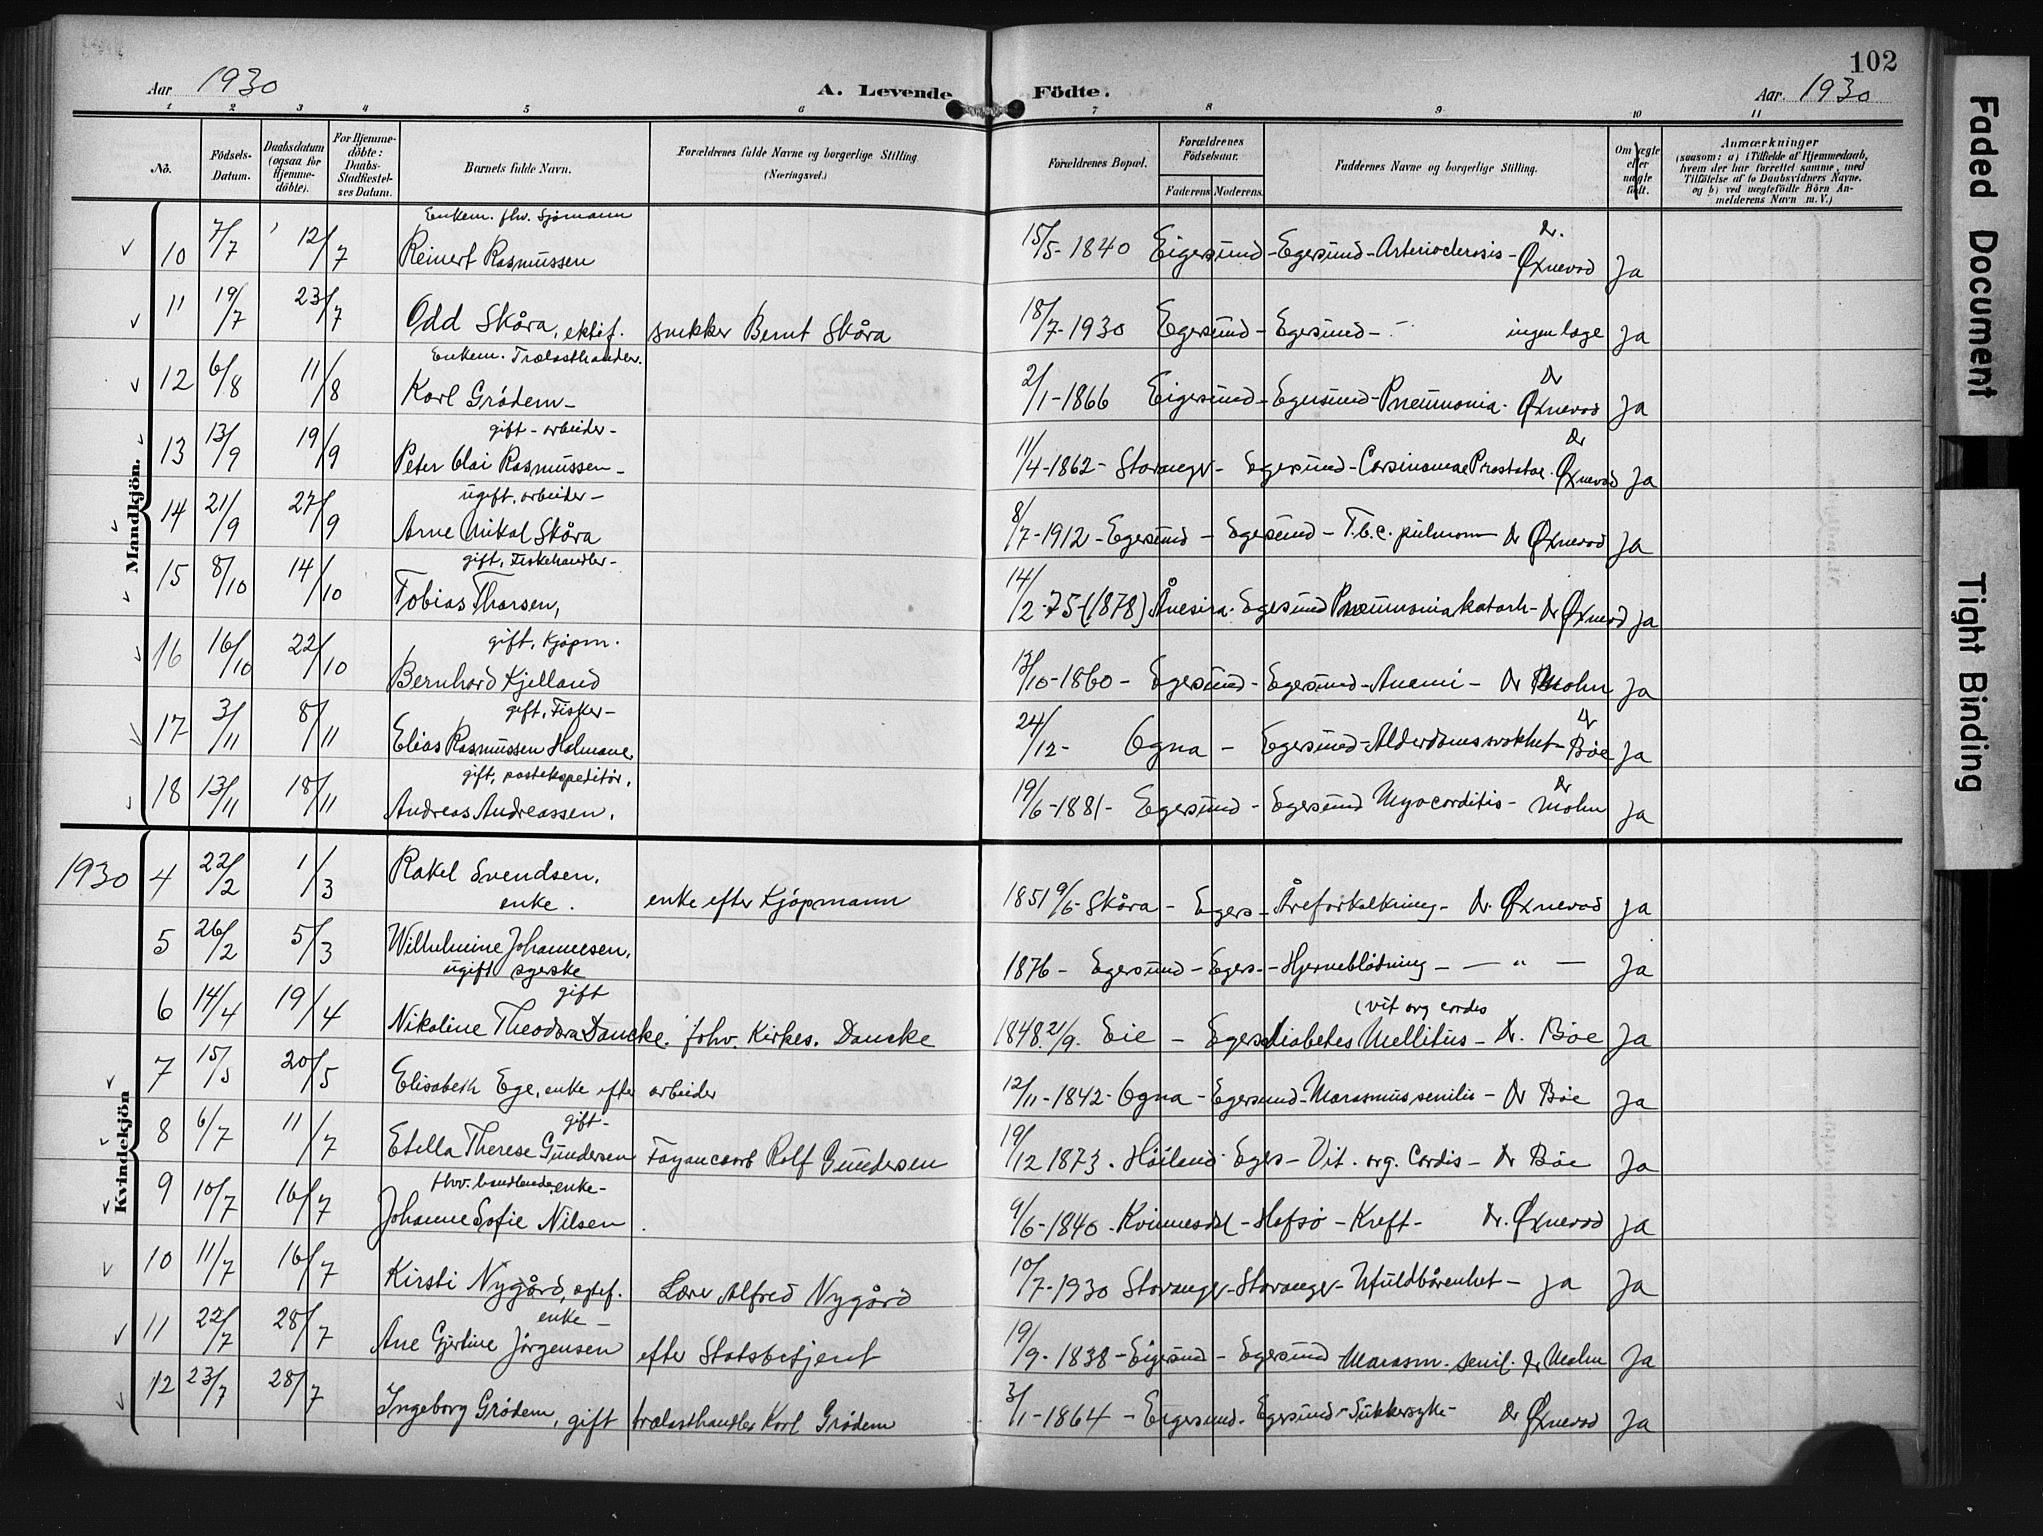 102
Aar 1930 A. Levende Födte. Aar. 1930
1 2 3 4 5 6 7 8 9 10 11
No. Födsels-Datum. Daabsdatum (ogsaa for Hjemme-döbte). For Hjemme-döbte: Daabs-Stadfæstel-ses Datum. Barnets fulde Navn. Forældrenes fulde Navne og borgerlige Stilling. (Næringsvei.) Forældrenes Bopæl. Forældrenes Födselsaar. Faderens. Moderens. Faddernes Navne og borgerlige Stilling. Om ægte eller uægte født. Anmærkninger (saasom: a) i Tilfælde af Hjemmedaab, hvem der har forrettet samme, med Tilføielse af to Daabsvidners Navne. og b) ved uægtefödte Börn An-melderens Navn m. V.)
Mandkjön.
Enkem. fhv. Sjømann
10 7/7 12/7 Reinert Rasmussen 15/5-1840 Eigersund - Egersund - Arteriosclerosis - Dr. Øxnevad Ja
11 19/7 23/7 Odd Skåra, ektef. snekker Bernt Skåra 18/7-1930 Egersund - Egersund - ingen læge Ja
Enkem. Trælasthandler.
12 6/8 11/8 Karl Grødem - 2/1-1866 Eigersund - Egersund - Pneumonia - Dr Øxnevad Ja
gift - arbeider -
13 13/9 19/9 Peter Olai Rasmussen - 11/4-1862 - Stavanger - Egersund - Carsinomae Prostatae. Dr Øxnevad Ja
ugift. arbeider -
14 21/9 27/9 Arne Mikal Skåra 8/7-1912 - Egersund - Egersund - T.b.c. pulmon Dr Øxnevad Ja
gift, Fiskehandler -
15 8/10 14/10 Tobias Thorsen, 14/2-75-(1878) Ånesira. Egersund Pneumonia katarh - Dr Øxnevad Ja
gift, Kjøpm.
16 16/10 22/10 Bernhard Kjelland 13/10-1860 - Egersund - Egersund - Anemi - Dr Mohn Ja
gift, Fisker -
17 3/11 8/11 Elias Rasmussen 24/12- Ogna - Egersund - Alderdomssvakhet - Dr Bøe Ja
gift, postekspeditør.
18 13/11 18/11 Andreas Andreassen. 19/6-1881- Egersund - Egersund Myocarditis - Dr Mohn Ja
1930
Kvindekjön
4 22/2 1/3 Rakel Svendsen. enke. enke efter Kjøpmann 1851 9/6 - Skåra - Egers - Åreforkalkning - Dr. Øxnevad Ja
5 26/2 5/3 Wilhelmine Johannesen, ugift syerske 1876 - Egersund - Egers. - Hjerneblødning - — " — Ja
gift
6 14/4 19/4 Nikoline Theodora Dancke. fohv. Kirkes. Dancke 1848. 21/9. Eie - Egers diabetes Mellitus (vit org cordis - Dr. Bøe Ja
7 15/5 20/5 Elisabeth Ege, enke efter arbeider 12/11-1842 - Ogna - Egersund - Marasmus senilis - Dr Bøe Ja
gift -
8 6/7 11/7 Etella Therese Gundersen Fayancearb Rolf Gundersen 19/12 1873. Høiland Egers - Vit. org. Cordis - Dr Bøe Ja
fhv. handlende, enke -
9 10/7 16/7 Johanne Sofie Nilsen. 9/6-1840. Kvinnesdal - Hafsø - Kreft - Dr. Øxnevad Ja
10 11/7 16/7 Kirsti Nygård, egtef. Lærer Alfred Nygård 10/7-1930 Stavanger - Stavanger - Ufuldbårenhet - ja Ja
enke -
11 22/7 28/7 Ane Gjertine Jørgensen efter Statsbetjent 19/9-1838 - Eigersund - Egersund - Marasm. senil. Dr Mohn Ja
12 23/7 28/7 Ingeborg Grødem, gift trælasthandler Karl Grødem 3/1-1864 - Eigersund. Egersund - Sukkersyke - Dr Øxnevad Ja
Faded Document
Tight Binding